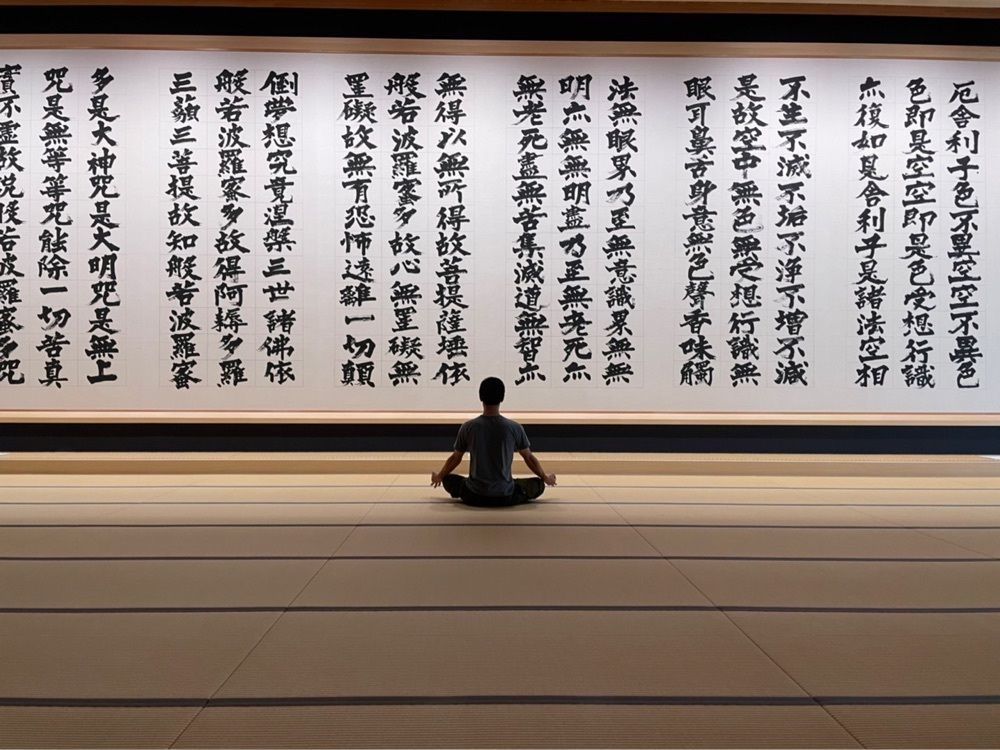 厄舎利子色不異空空不異色
色即是空空即是色受想行識
亦復如是舎利子是諸法空相
不生不滅不垢不浄不増不減
是故空中無色無受想行識無
眼耳鼻舌身意無色聲香味觸
法無眼界乃至無意識界無無
明亦無無明盡乃至無老死亦
無老死盡無苦集滅道無智亦
無得以無所得故菩提薩埵依
般若波羅蜜多故心無罣礙無
罣礙故無有恐怖遠離一切顛
倒夢想究竟涅槃三世諸佛依
般若波羅蜜多故得阿耨多羅
三藐三菩提故知般若波羅蜜
多是大神咒是大明咒是無上
咒是無等等咒能除一切苦真
實不虚故説般若波羅蜜多咒